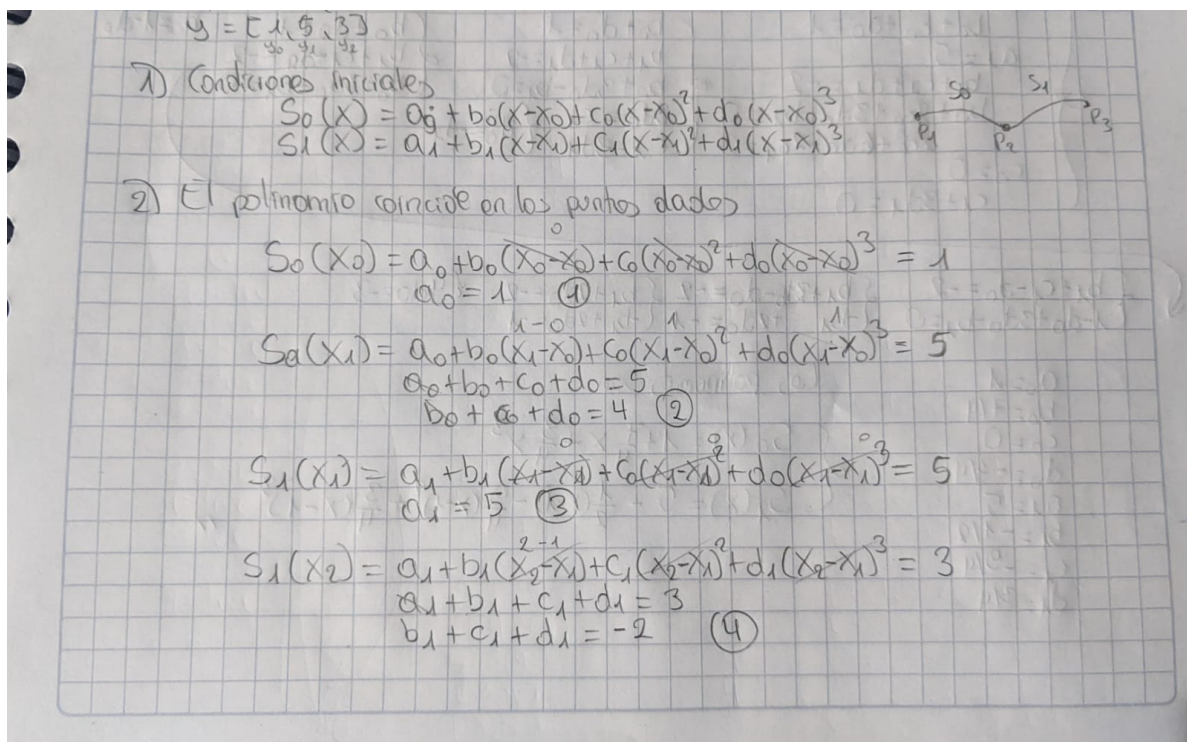 y = [1, 5, 3]
y₀ y₁ y₂
1) Condiciones iniciales
S₀(x) = a₀ + b₀(x-x₀) + c₀(x-x₀)² + d₀(x-x₀)³
S₁(x) = a₁ + b₁(x-x₁) + c₁(x-x₁)² + d₁(x-x₁)³
S₀ S₁
P₁ P₂ P₃
2) El polinomio coincide en los puntos dados
0
S₀(x₀) = a₀ + b₀(x₀-x₀) + c₀(x₀-x₀)² + d₀(x₀-x₀)³ = 1
a₀ = 1 ①
1-0 1 1
Sa(x₁) = a₀ + b₀(x₁-x₀) + c₀(x₁-x₀)² + d₀(x₁-x₀)³ = 5
a₀ + b₀ + c₀ + d₀ = 5
b₀ + c₀ + d₀ = 4 ②
0 0 0
S₁(x₁) = a₁ + b₁(x₁-x₁) + c₀(x₁-x₁)² + d₀(x₁-x₁)³ = 5
a₁ = 5 ③
2-1
S₁(x₂) = a₁ + b₁(x₂-x₁) + c₁(x₂-x₁)² + d₁(x₂-x₁)³ = 3
a₁ + b₁ + c₁ + d₁ = 3
b₁ + c₁ + d₁ = -2 ④